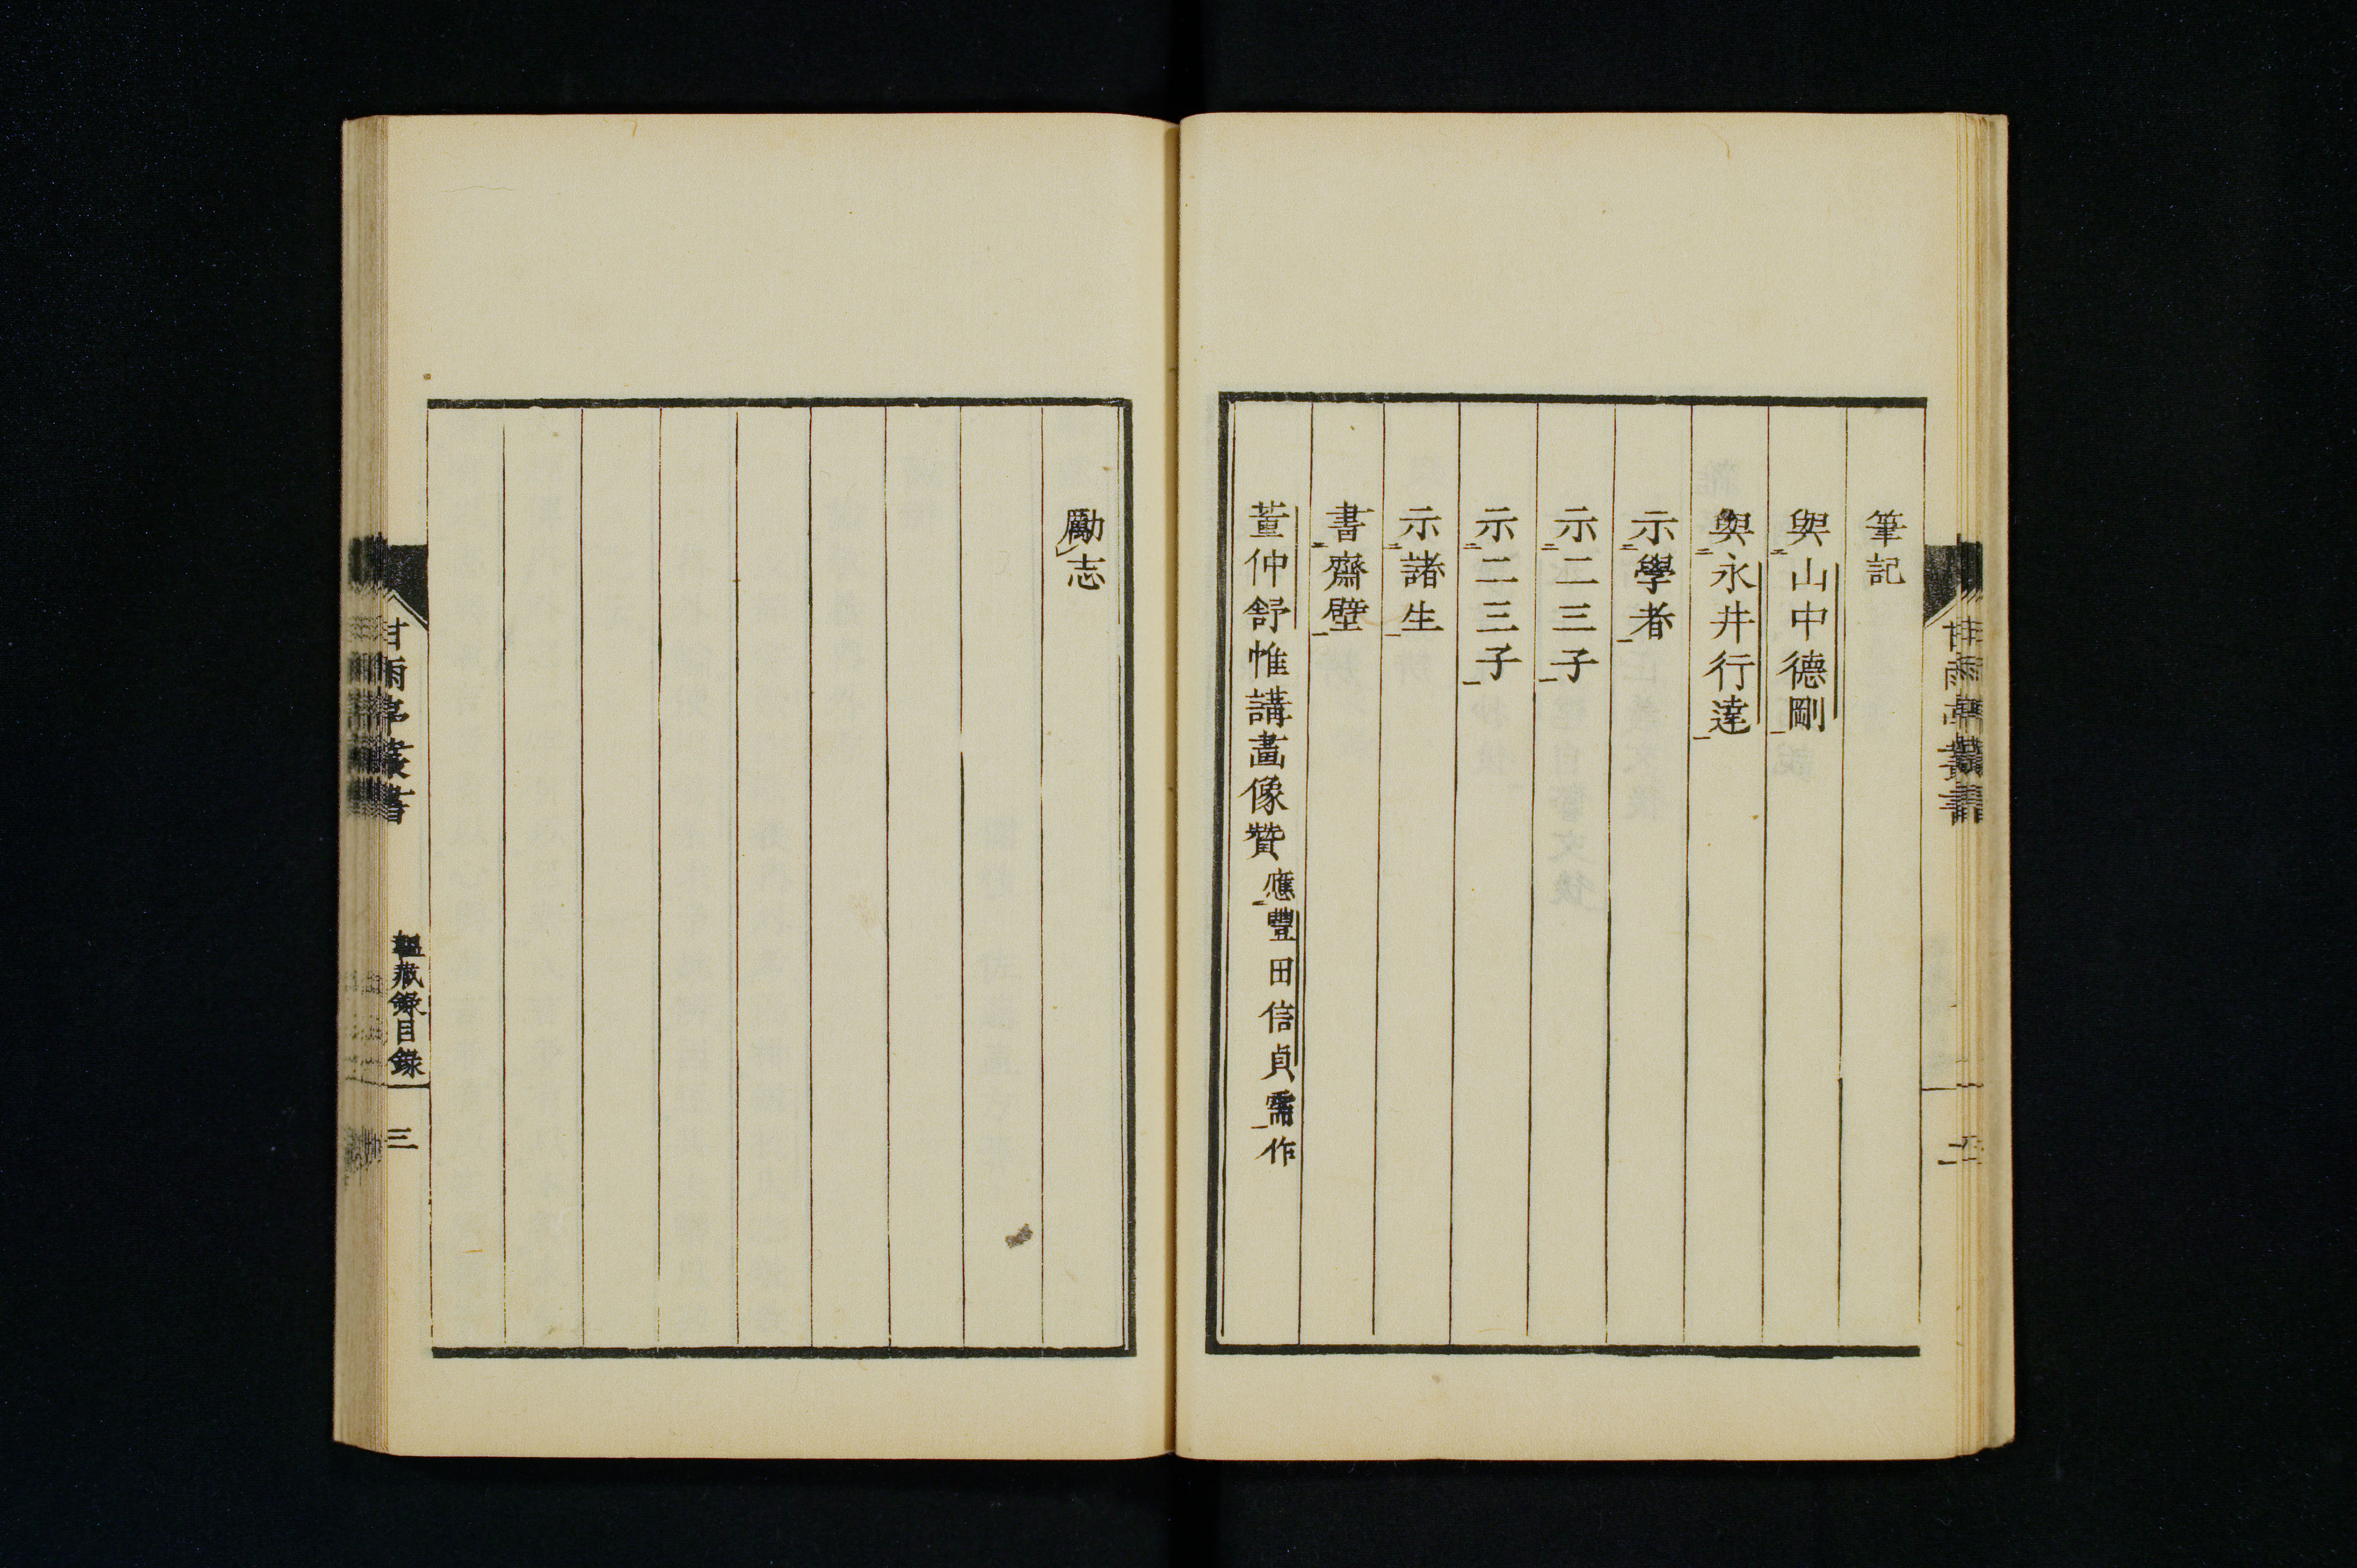 筆記
與山中德剛
與永井行達
示學者
示二三子
示二三子
示諸生
書齋壁
董仲舒帷講畫像贊應豐田信貞需作
勵志
甘雨亭叢書
韞藏錄目錄
三